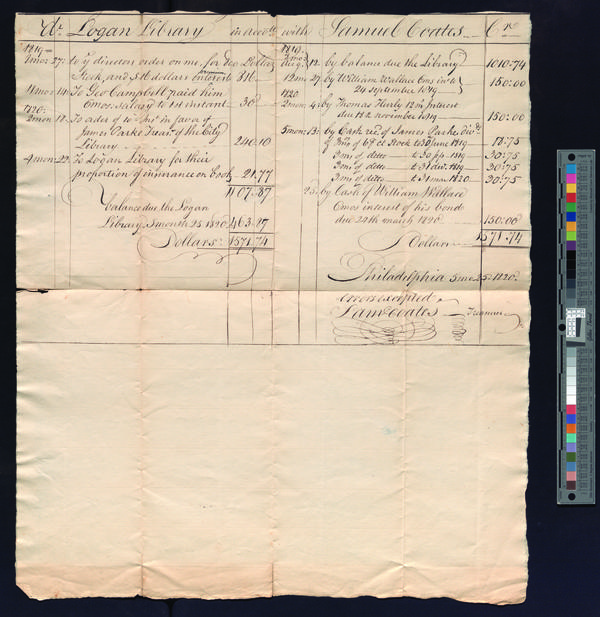 Dr. Logan Library in acco.t with Samuel Coates Cr.
1819
1mo: 27: to directors order on me, for
Stock, and 516 dollars 816
4mo: 14: To Geo Campbell paid him
6mos. salary to 1st instant 30
1820:
2mon: 12: To order of in favor of
James Parke Trea.r of the City
Library 240.10
4mon: 22: To Logan Library for their
proportion of insurance on Books 21.77
1107.87
balance due the Logan
Library 5 month 25 1820 463.87
Dollars: 1571.74
1819:
by balance due the Library 1010.74
12mo 27: by William Wallace 6ms in't
24 september 1819 150:00
1820
2mon: 4: by Thomas Herly 12 m interest
due 18th november 1819 150:00
5mon: 13: by Cash rec.d of James Parke Div.d
3ms of 6 p.Ct Stock to 30 June 1819 18.75
3ms of ditto to 30 sep. 1819 30:75
3ms of ditto to 31 dec. 1819 30:75
3ms of ditto to 31 mar. 1820 30:75
25: by Cash of William Wallace
6mos interest of his bond
due 24th march 1820 150:00
Dollars 1571.74
Philadelphia 5mo: 25: 1820
errors excepted
Sam Coates Treasurer